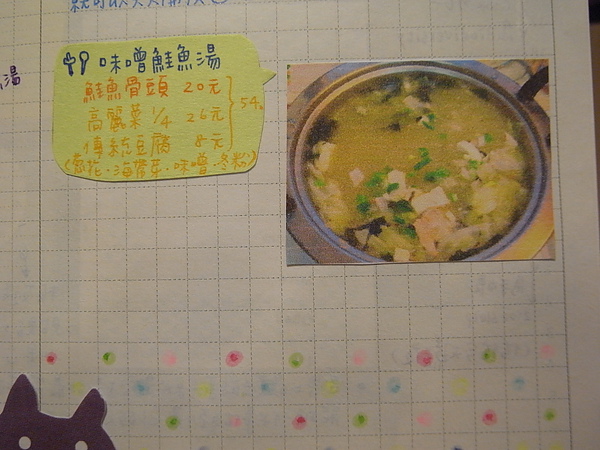 就可以天天開伙
湯
味噌鮭魚湯
鮭魚骨頭 20元
高麗菜 1/4 26元
傳統豆腐 8元
54元
(蔥花·海帶芽·味噌·冬粉)